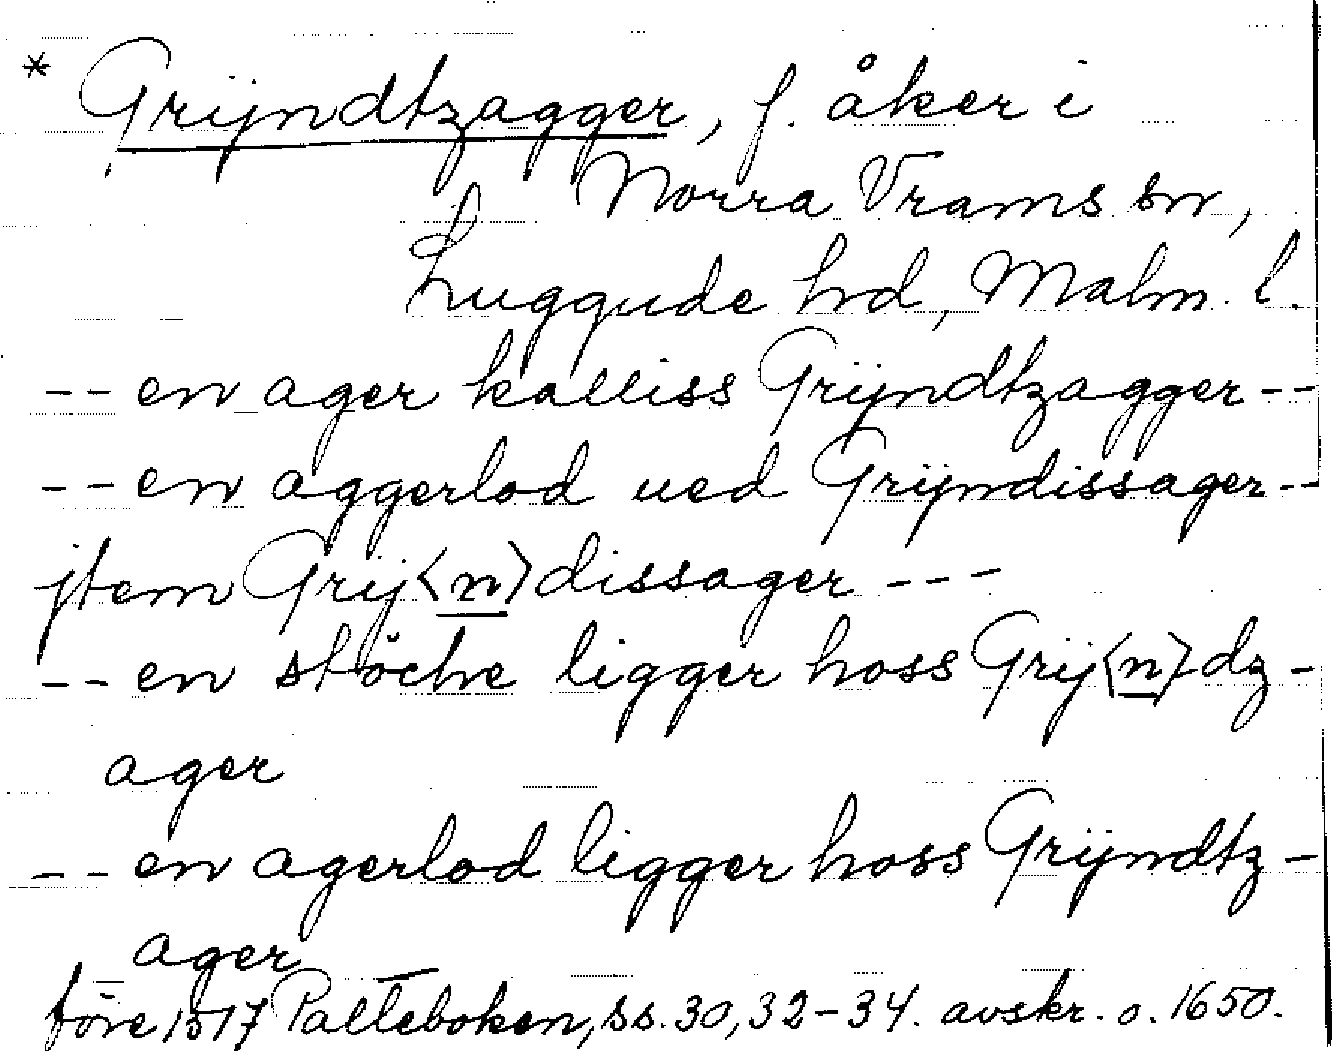 * Grijndtzagger, f. åker i
Norra Vrams sn,
Luggude hd, Malm. l.
-- en ager kalliss Grijndtzagger --
-- en aggerlod ued Grijndissager --
jtem Grij<n>dissager ---
-- en stöche ligger hoss Grij<n>dz-
ager
-- en agerlod ligger hoss Grijndtz-
ager
före 1517 Palteboken, ss. 30, 32-34. avskr. o. 1650.